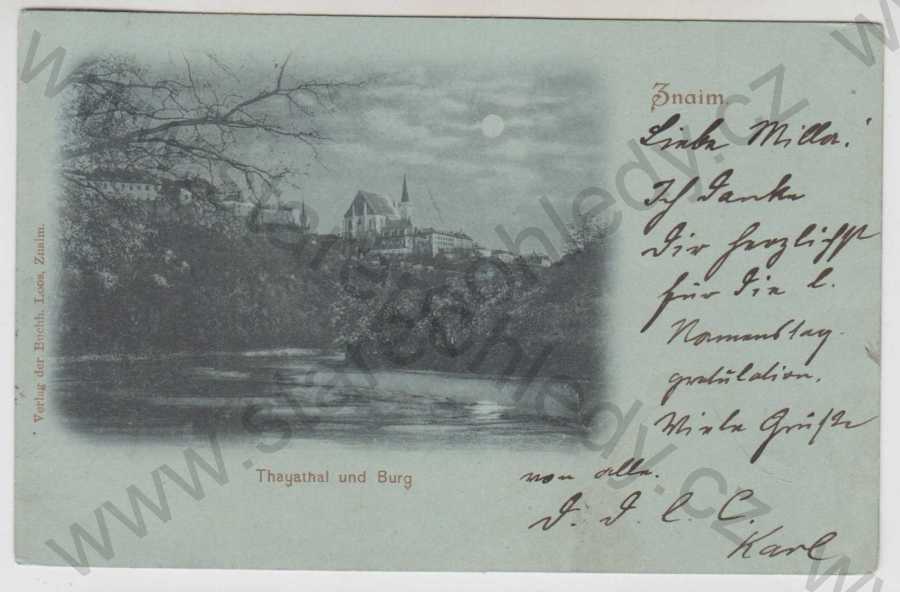 Znaim.
Liebe Milla!
Ich danke
Dir herzlichst
für die l.
Namenstag-
gratulation.
Viele Grüße
von alle.
D. D. l. C.
Karl
Thayathal und Burg
Verlag der Buchh. Loos, Znaim.
www.starepohledy.cz